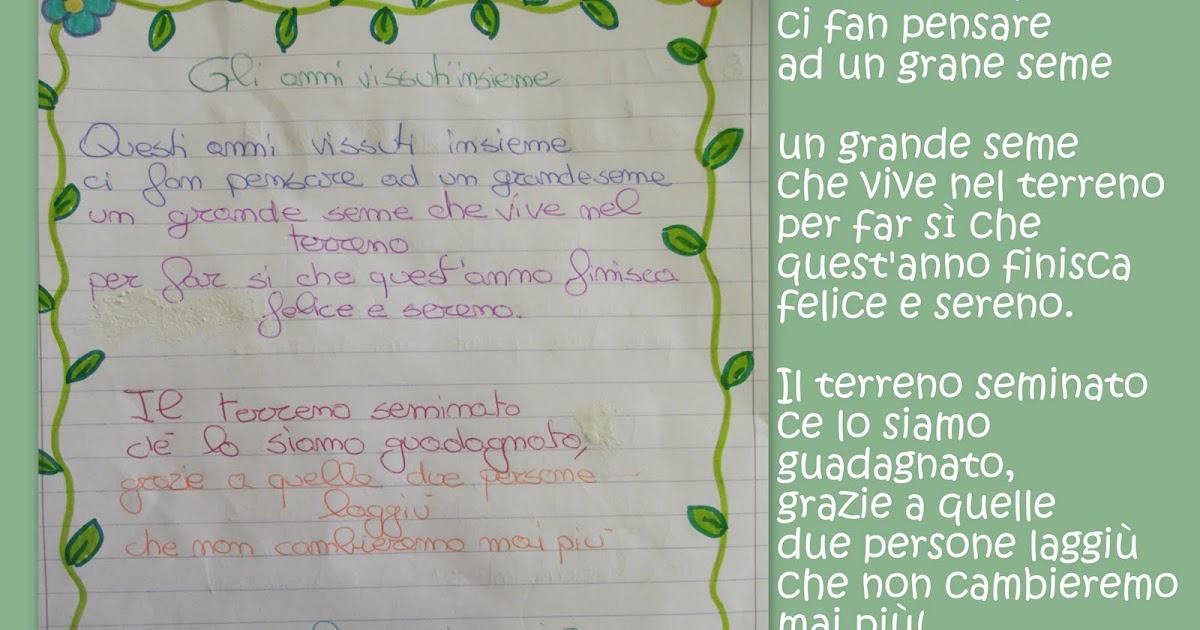 Gli anni vissuti insieme
Questi anni vissuti insieme
ci fan pensare ad un grande seme
un grande seme che vive nel
terreno
per far si che quest'anno finisca
felice e sereno.
Il terreno seminato
cé lo siamo guadagnato,
grazie a quelle due persone
laggiù
che non cambieremo mai più
ci fan pensare
ad un grane seme
un grande seme
che vive nel terreno
per far sì che
quest'anno finisca
felice e sereno.
Il terreno seminato
ce lo siamo
guadagnato,
grazie a quelle
due persone laggiù
che non cambieremo
mai più!